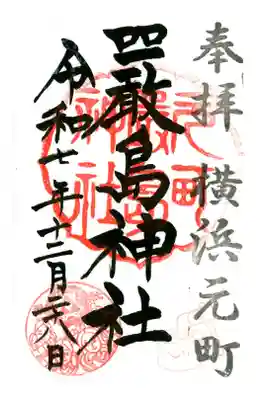 奉拝 横浜元町
嚴島神社
令和七年十二月廿八日